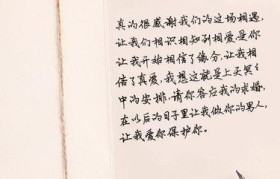 真的很感谢我们的这场相遇,
让我们相识相知到相爱是你
让我开始相信了缘分,让我相
信了真爱.我想这就是上天冥冥
中的安排.请你答应我的求婚,
在以后的日子里让我做你的男人,
让我爱你保护你。